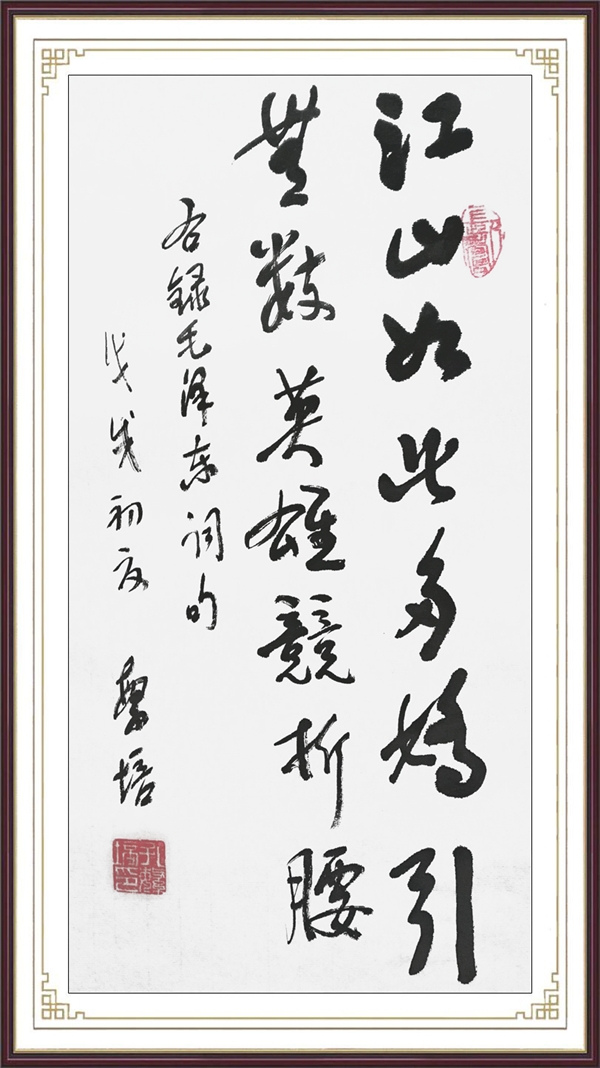 江山如此多嬌引
無數英雄競折腰
右録毛泽东词句
戊戌初夏 培